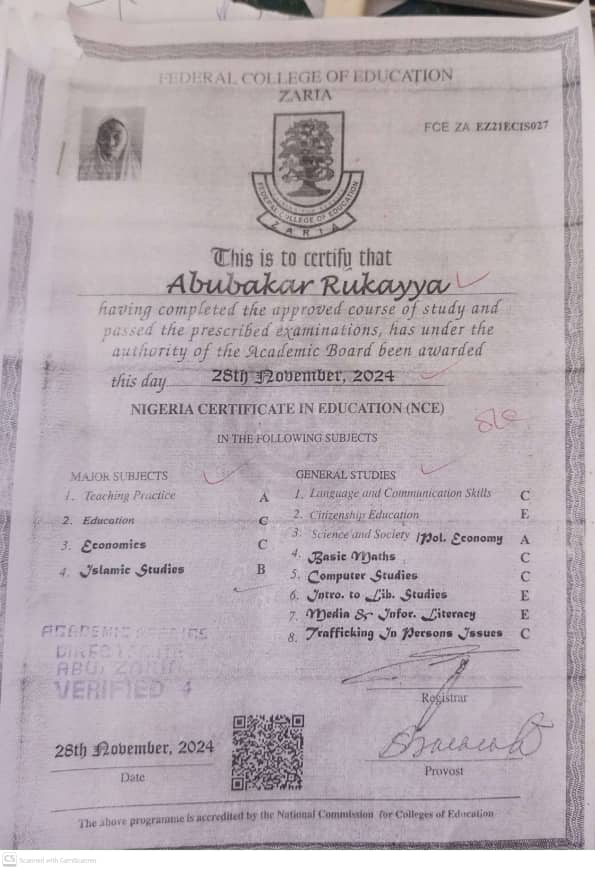 FEDERAL COLLEGE OF EDUCATION
ZARIA
FCE ZA EZ21ECIS027
FEDERAL COLLEGE OF EDUCATION
ZARIA
This is to certify that
Abubakar Rukayya
having completed the approved course of study and
passed the prescribed examinations, has under the
authority of the Academic Board been awarded
this day 28th November, 2024
NIGERIA CERTIFICATE IN EDUCATION (NCE)
IN THE FOLLOWING SUBJECTS
MAJOR SUBJECTS
1. Teaching Practice A
2. Education C
3. Economics C
4. Islamic Studies B
GENERAL STUDIES
1. Language and Communication Skills C
2. Citizenship Education E
3. Science and Society /Pol. Economy A
4. Basic Maths C
5. Computer Studies C
6. Intro. to Lib. Studies E
7. Media & Infor. Literacy E
8. Trafficking In Persons Issues C
ACADEMIC AFFAIRS
ABU ZARIA
VERIFIED 4
Registrar
28th November, 2024
Date
Provost
The above programme is accredited by the National Commission for Colleges of Education
CS Scanned with CamScanner